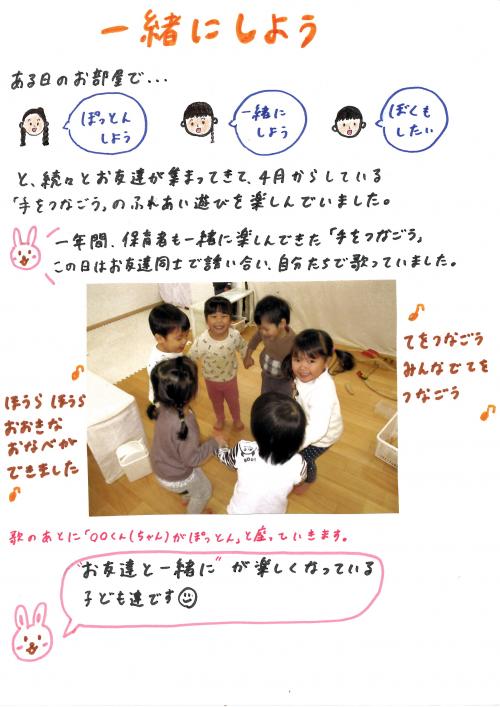 一緒にしよう
ある日のお部屋で...
ぽっとん
しよう
一緒に
しよう
ぼくも
したい
と、続々とお友達が集まってきて、4月からしている
「手をつなごう」のふれあい遊びを楽しんでいました。
一年間、保育者も一緒に楽しんできた「手をつなごう」
この日はお友達同士で誘い合い、自分たちで歌っていました。
てをつなごう
みんなでてを
つなごう
ほうら ほうら
おおきな
おなべが
できました
歌のあとに「○○くん(ちゃん)がぽっとん」と座っていきます。
"お友達と一緒に"が楽しくなっている
子ども達です☺